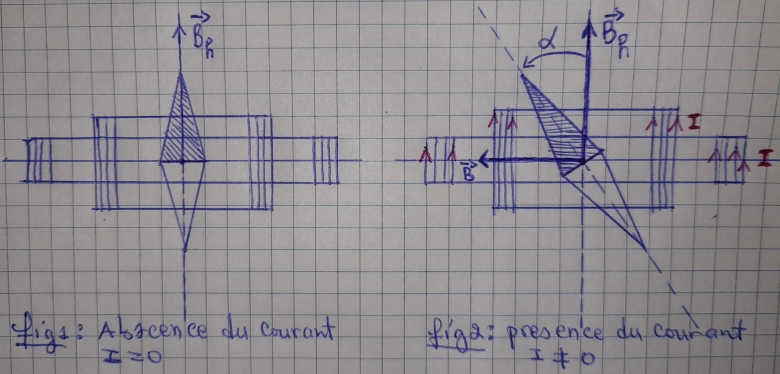 B⃗h
α
B⃗h
I
B⃗
I
fig1: Abscence du courant
I=0
fig2: présence du courant
I≠0